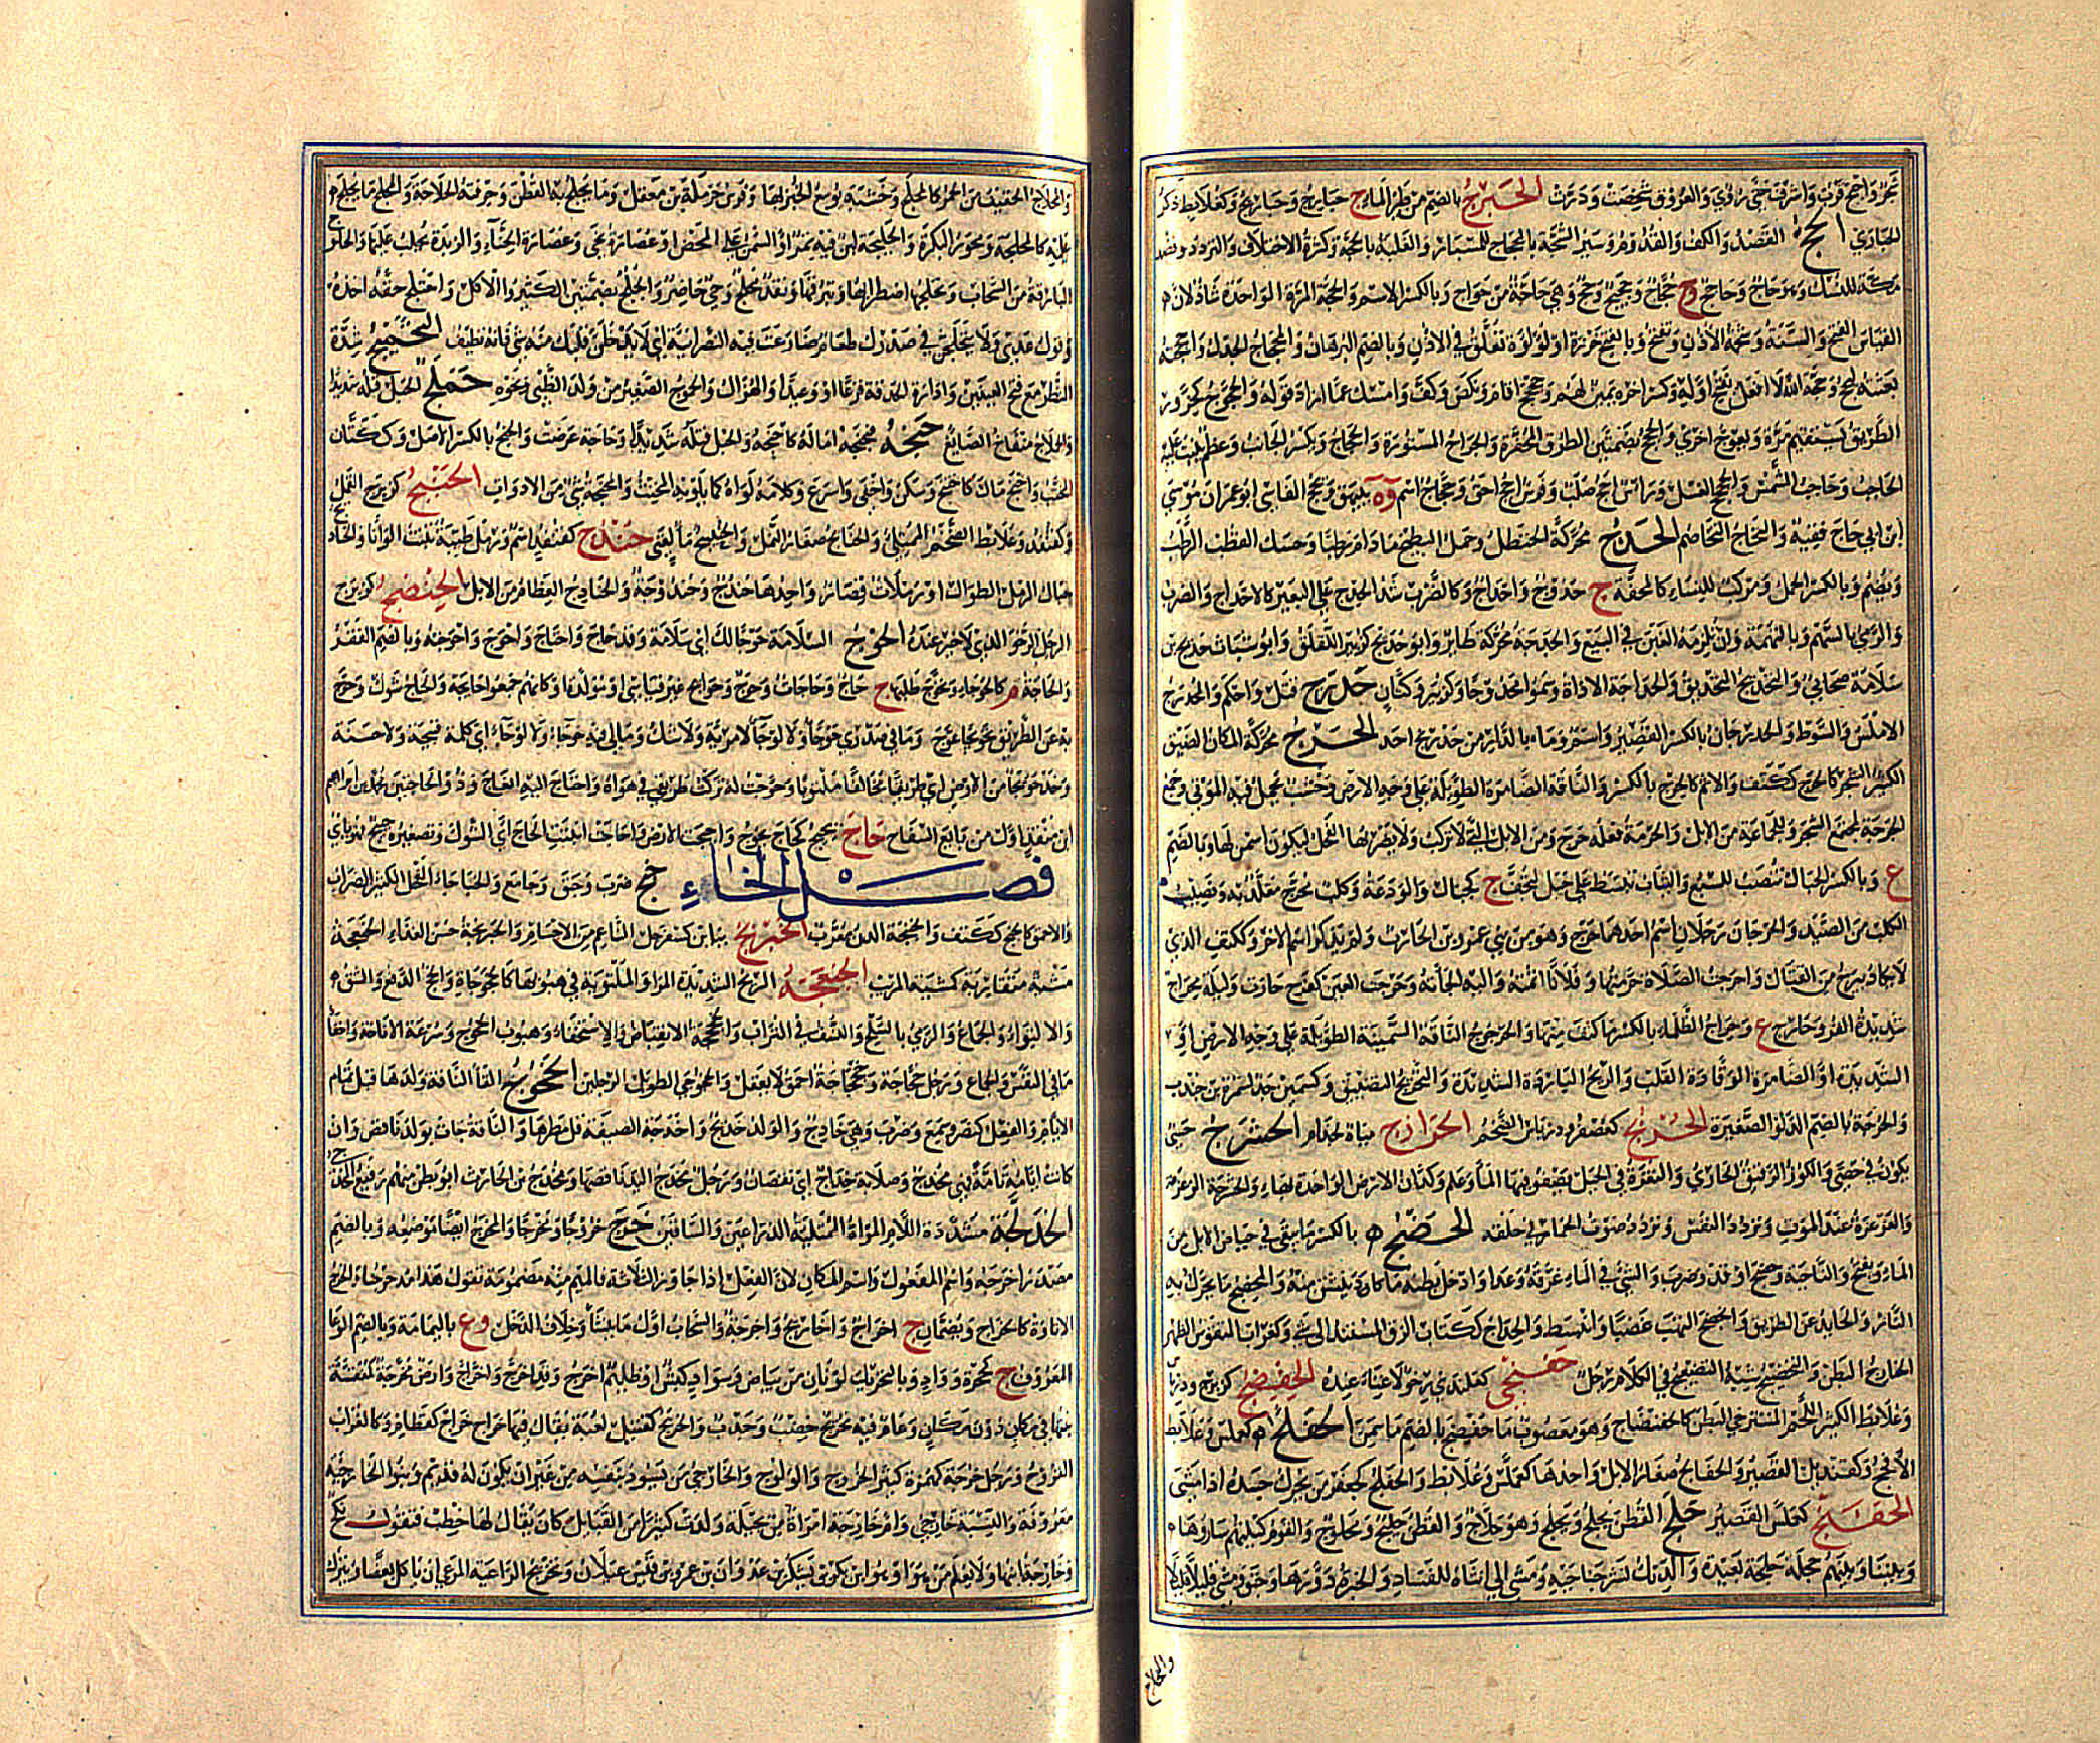 وأحج قرب وأشرف حتى رؤي والعروق شخصت ودرت الحبرج بالضم من طير الماء ج حبارج وحباريج وكعلابط ذكر
الحبارى الحج القصد والكف والقدوم وسبر الشجة بالمحجاج للمسبار والغلبة بالحجة وكثرة الاختلاف والتردد وقصد
مكة للنسك وهو حاج وحاجج ج حجاج وحجيج وحج وهي حاجة من حواج وبالكسر الاسم والحجة المرة الواحدة شاذ لأن
القياس الفتح والسنة وشحمة الأذن ويفتح وبالفتح خرزة أو لؤلؤة تعلق في الأذن وبالضم البرهان والمحجاج الجدل وأحججته
بعثته ليحج وحجة الله لا أفعل بفتح أوله وكسر آخره يمين لهم وحجحج أقام ونكص وكف وأمسك عما أراد قوله والحجوج كحزور
الطريق يستقيم مرة ويعوج أخرى والحجج بضمتين الطرق المحفرة والجراح المسبورة والحجاج ويكسر الجانب وعظم ينبت عليه
الحاجب وحاجب الشمس والحجحج الفسل ورأس أحج صلب وفرس أحج أحق وحجاج اسم وة ببيهق وحج الفاسي أبو عمران موسى
ابن أبي حاج فقيه والتحاج التخاصم الحدج محركة الحنظل وحمل البطيخ ما دام رطبا وحسك القطب الرطب
ويضم وبالكسر الحمل ومركب للنساء كالمحفة ج حدوج وأحداج وكالضرب شد الحدج على البعير كالإحداج والضرب
والرمي بالسهم وبالتهمة وأن تلزمه الغبن في البيع والحدجة محركة طائر وأبو حديج كزبير اللقلق وأبو شباث حديج بن
سلامة صحابي والتحديج التحديق والحداجة الأداة وسموا محدوجا وكزبير وكتان حدرج فتل وأحكم والمحدرج
الأملس والسوط والحدرجان بالكسر القصير واسم وما بالدار من حدرج أحد الحرج محركة المكان الضيق
الكثير الشجر كالحرج ككتف والإثم كالحرج بالكسر والناقة الضامرة الطويلة على وجه الأرض وخشب يحمل فيه الموتى وجمع
الحرجة لمجتمع الشجر وللجماعة من الإبل والحرمة فعله حرج ومن الإبل التي لا تركب ولا يضربها الفحل ليكون أسمن لها وبالضم
ع وبالكسر الحبال تنصب للسبع والثياب تبسط على حبل لتجف ج كجبال والودعة وكلب محرج مقلد به ونصيب
الكلب من الصيد والحرجان رجلان اسم أحدهما حرج وهو من بني عمرو بن الحارث ولم يذكر اسم الآخر وككتف الذي
لا يكاد يبرح من القتال وأحرجت الصلاة حرمتها وفلانا أثمته وإليه ألجأته وحرجت العين كفرح حارت وليلة محراج
شديدة القر وحارج ع وحراج الظلماء بالكسر ما كثف منها والحرجوج الناقة السمينة الطويلة على وجه الأرض أو
الشديدة أو الضامرة الوقادة القلب والريح الباردة الشديدة والتحريج التضييق وكسمين جد لسمرة بن جندب
والحرجة بالضم الدلو الصغيرة الحربج كعصفر ودرباس الضخم الحرازج مياه لجذام الحشرج حسي
يكون في حصى والكوز الرقيق الحاري والنقرة في الجبل يصفو فيها الماء وعلم وكذان الأرض الواحدة بهاء والحشرجة الغرغرة
والغرغرة عند الموت وتردد النفس وتردد صوت الحمار في حلقه الحضج بالكسر ما يبقى في حياض الإبل من
الماء ويفتح والناحية وحضج أوقد وضرب والشيء في الماء غرقه وعدا وأدخل بطنه ما كاد ينشق منه والمحضج ما يحرك به
النار والحائد عن الطريق وانحضج التهب غضبا وانبسط والحضاج ككتاب الزق المستند إلى شيء وكغراب المنقوس الظهر
الخارج البطن والتحضيج شبه التضجيع في الكلام رجل حفنجى كعلندى رخو لا غناء عنده الحفضج كزبرج ودرباس
وعلابط الكثير اللحم المسترخي البطن كالحفنضاج وهو معصوب ما حفضج بالضم ما سمن الحفلج كعملس وعلابط
الأفحج وكقنديل القصير والحفالج صغار الإبل واحدها كعملس وعلابط والحفلج كجعفر من يحرك جسده إذا مشى
الحفلج كعملس القصير حلج القطن يحلج ويحلج وهو حلاج والقطن حليج ومحلوج والقوم ليلتهم ساروها
وبيننا وبينهم حلجة بعيدة والديك نشر جناحيه ومشى إلى أنثاه للسفاد والخبزة دورها وحبق ومشى قليلا قليلا
والحلاج
والمحلاج الخفيف من الحمر كالمحلج وخشبة يوسع الخبز بها وفرس حرملة بن معقل وما يحلج به القطن وحرفته الحلاجة والمحلج ما يحلج
عليه كالمحلجة ومحور البكرة والحليجة لبن فيه تمر أو السمن على المخض أو عصارة نحي وعصارة الحناء والزبدة يحلب عليها والحلوج
البارقة من السحاب وتحلجها اضطرابها وتبرقها ونقد محلج وحي حاضر والحلج بضمتين الكثيرو الأكل واحتلج حقه أخذه
وقول عدي ولا يتحلجن في صدرك طعام ضارعت فيه النصرانية أي لا يدخلن قلبك منه شيء فإنه نظيف التحميج شدة
النظر مع فتح العينين وإدارة الحدقة فزعا أو وعيدا والهزال والحموج الصغير من ولد الظبي ونحوه حملج الحبل فتله شديدا
والحملاج منفاخ الصائغ حنجه يحنجه أماله كأحنجه والحبل فتله شديدا وحاجة عرضت والحنج بالكسر الأصل وككتان
المخنث وأحنج مال كاحتنج وسكن وأخفى وأسرع وكلامه لواه كما يلويه المخنث والمحنجة شيء من الأدوات الحنبج كزبرج القمل
وكقنفذ وعلابط الضخم الممتلئ والحنابج صغار النمل والحنيبج ماء لغني حندج كقنفذ اسم ورملة طيبة تنبت ألوانا والحنادج
حبال الرمل الطوال أو رملات قصار واحدها حندج وحندوجة والحناديج العظام من الإبل الحنضج كزبرج
الرجل الرخو الذي لا خير عنده الحوج السلامة حوجا لك أي سلامة وقد حاج واحتاج وأحوج وأحوجته وبالضم الفقر
والحاجة م كالحوجاء وتحوج طلبها ج حاج وحاجات وحوج وحوائج غير قياسي أو مولدة أو كأنهم جمعوا حائجة والحاج شوك وحوج
به عن الطريق تحويجا عوج وما في صدري حوجاء ولا لوجاء لا مرية ولا شك وما لي فيه حوجاء ولا لوجاء أي كلمة قبيحة ولا حسنة
وخذ حويجاء من الأرض أي طريقا مخالفا ملتويا وحوجت له تركت طريقي في هواه واحتاج إليه انعاج وذو الحاجتين محمد بن إبراهيم
ابن منقذ أول من بايع السفاح حاج يحيج كحاج يحوج وأحيجت الأرض وأحاجت أنبتت الحاج أي الشوك وتصغيره حييج فهو يائي
فصل الخاء خبج ضرب وحبق وجامع والخباجاء الفحل الكثير الضراب
والأحمق كالخبج ككتف والخبجة الدن معرب الخبربج بباءين كسفرجل الناعم من الأجسام والخبربجة حسن الغذاء الخبعجة
مشية متقاربة كمشية المريب الخجوج الريح الشديدة المر أو الملتوية في هبوبها كالخجوجاة والخج الدفع والشق
والالتواء والجماع والرمي بالسلح والنسف في التراب والخجخجة الانقباض والاستخفاء وهبوب الخجوج وسرعة الإناخة وإخفاء
ما في النفس والجماع ورجل خجاجة وخجخاجة أحمق لا يعقل والخجوجى الطويل الرجلين الخدوج إلقاء الناقة ولدها قبل تمام
الأيام والفعل كنصر وسمع وضرب وهي خادج والولد خديج وأخدجت الصيفة قل مطرها والناقة جاءت بولد ناقص وإن
كانت أيامه تامة فهي مخدج وصلاته خداج أي نقصان ورجل مخدج اليد ناقصها ومخدج بن الحارث أبو بطن منهم رفيع المخدجي
الخدلجة مشددة اللام المرأة الممتلئة الذراعين والساقين خرج خروجا ومخرجا والمخرج أيضا موضعه وبالضم
مصدر أخرجه واسم المفعول واسم المكان لأن الفعل إذا جاوز الثلاثة فالميم منه مضمومة تقول هذا مدحرجنا والخرج
الإتاوة كالخراج ويضمان ج أخراج وأخاريج وأخرجة والسحاب أول ما ينشأ وخلاف الدخل وع باليمامة وبالضم الوعاء
المعروف ج كجحرة وواد وبالتحريك لونان من بياض وسواد كبش أو ظليم أخرج وقد اخرج واخراج وأرض مخرجة كمنقشة
نبتها في مكان دون مكان وعام فيه تخريج خصب وجدب والخريج كقتيل لعبة يقال فيها خراج خراج كقطام وكالغراب
القروح ورجل خرجة كهمزة كثير الخروج والولوج والخارجي من يسود بنفسه من غير أن يكون له قديم وبنو الخارجية
معروفة والنسبة خارجي وأم خارجة امرأة من بجيلة ولدت كثيرا من القبائل كان يقال لها خطب فتقول نكح
وخارجة ابنها ولا يعلم ممن هو أو هو ابن بكر بن يشكر بن عدوان بن عمرو بن قيس عيلان وتخريج الراعية المرعى أن تأكل بعضا وتترك